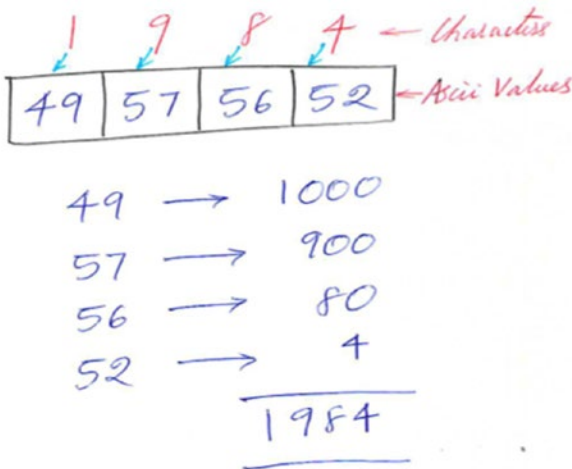 1 9 8 4 ← Characters
49 57 56 52 ← Ascii Values
49 → 1000
57 → 900
56 → 80
52 → 4
1984